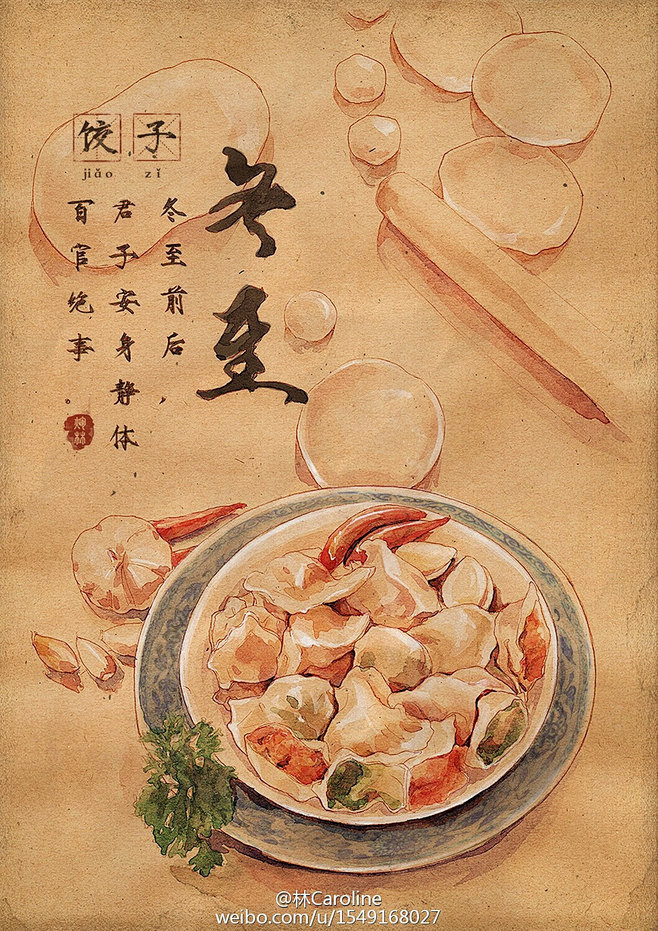 饺子
jiǎo zǐ
冬至
冬至前后，
君子安身静体
百官绝事。
@林Caroline
weibo.com/u/1549168027